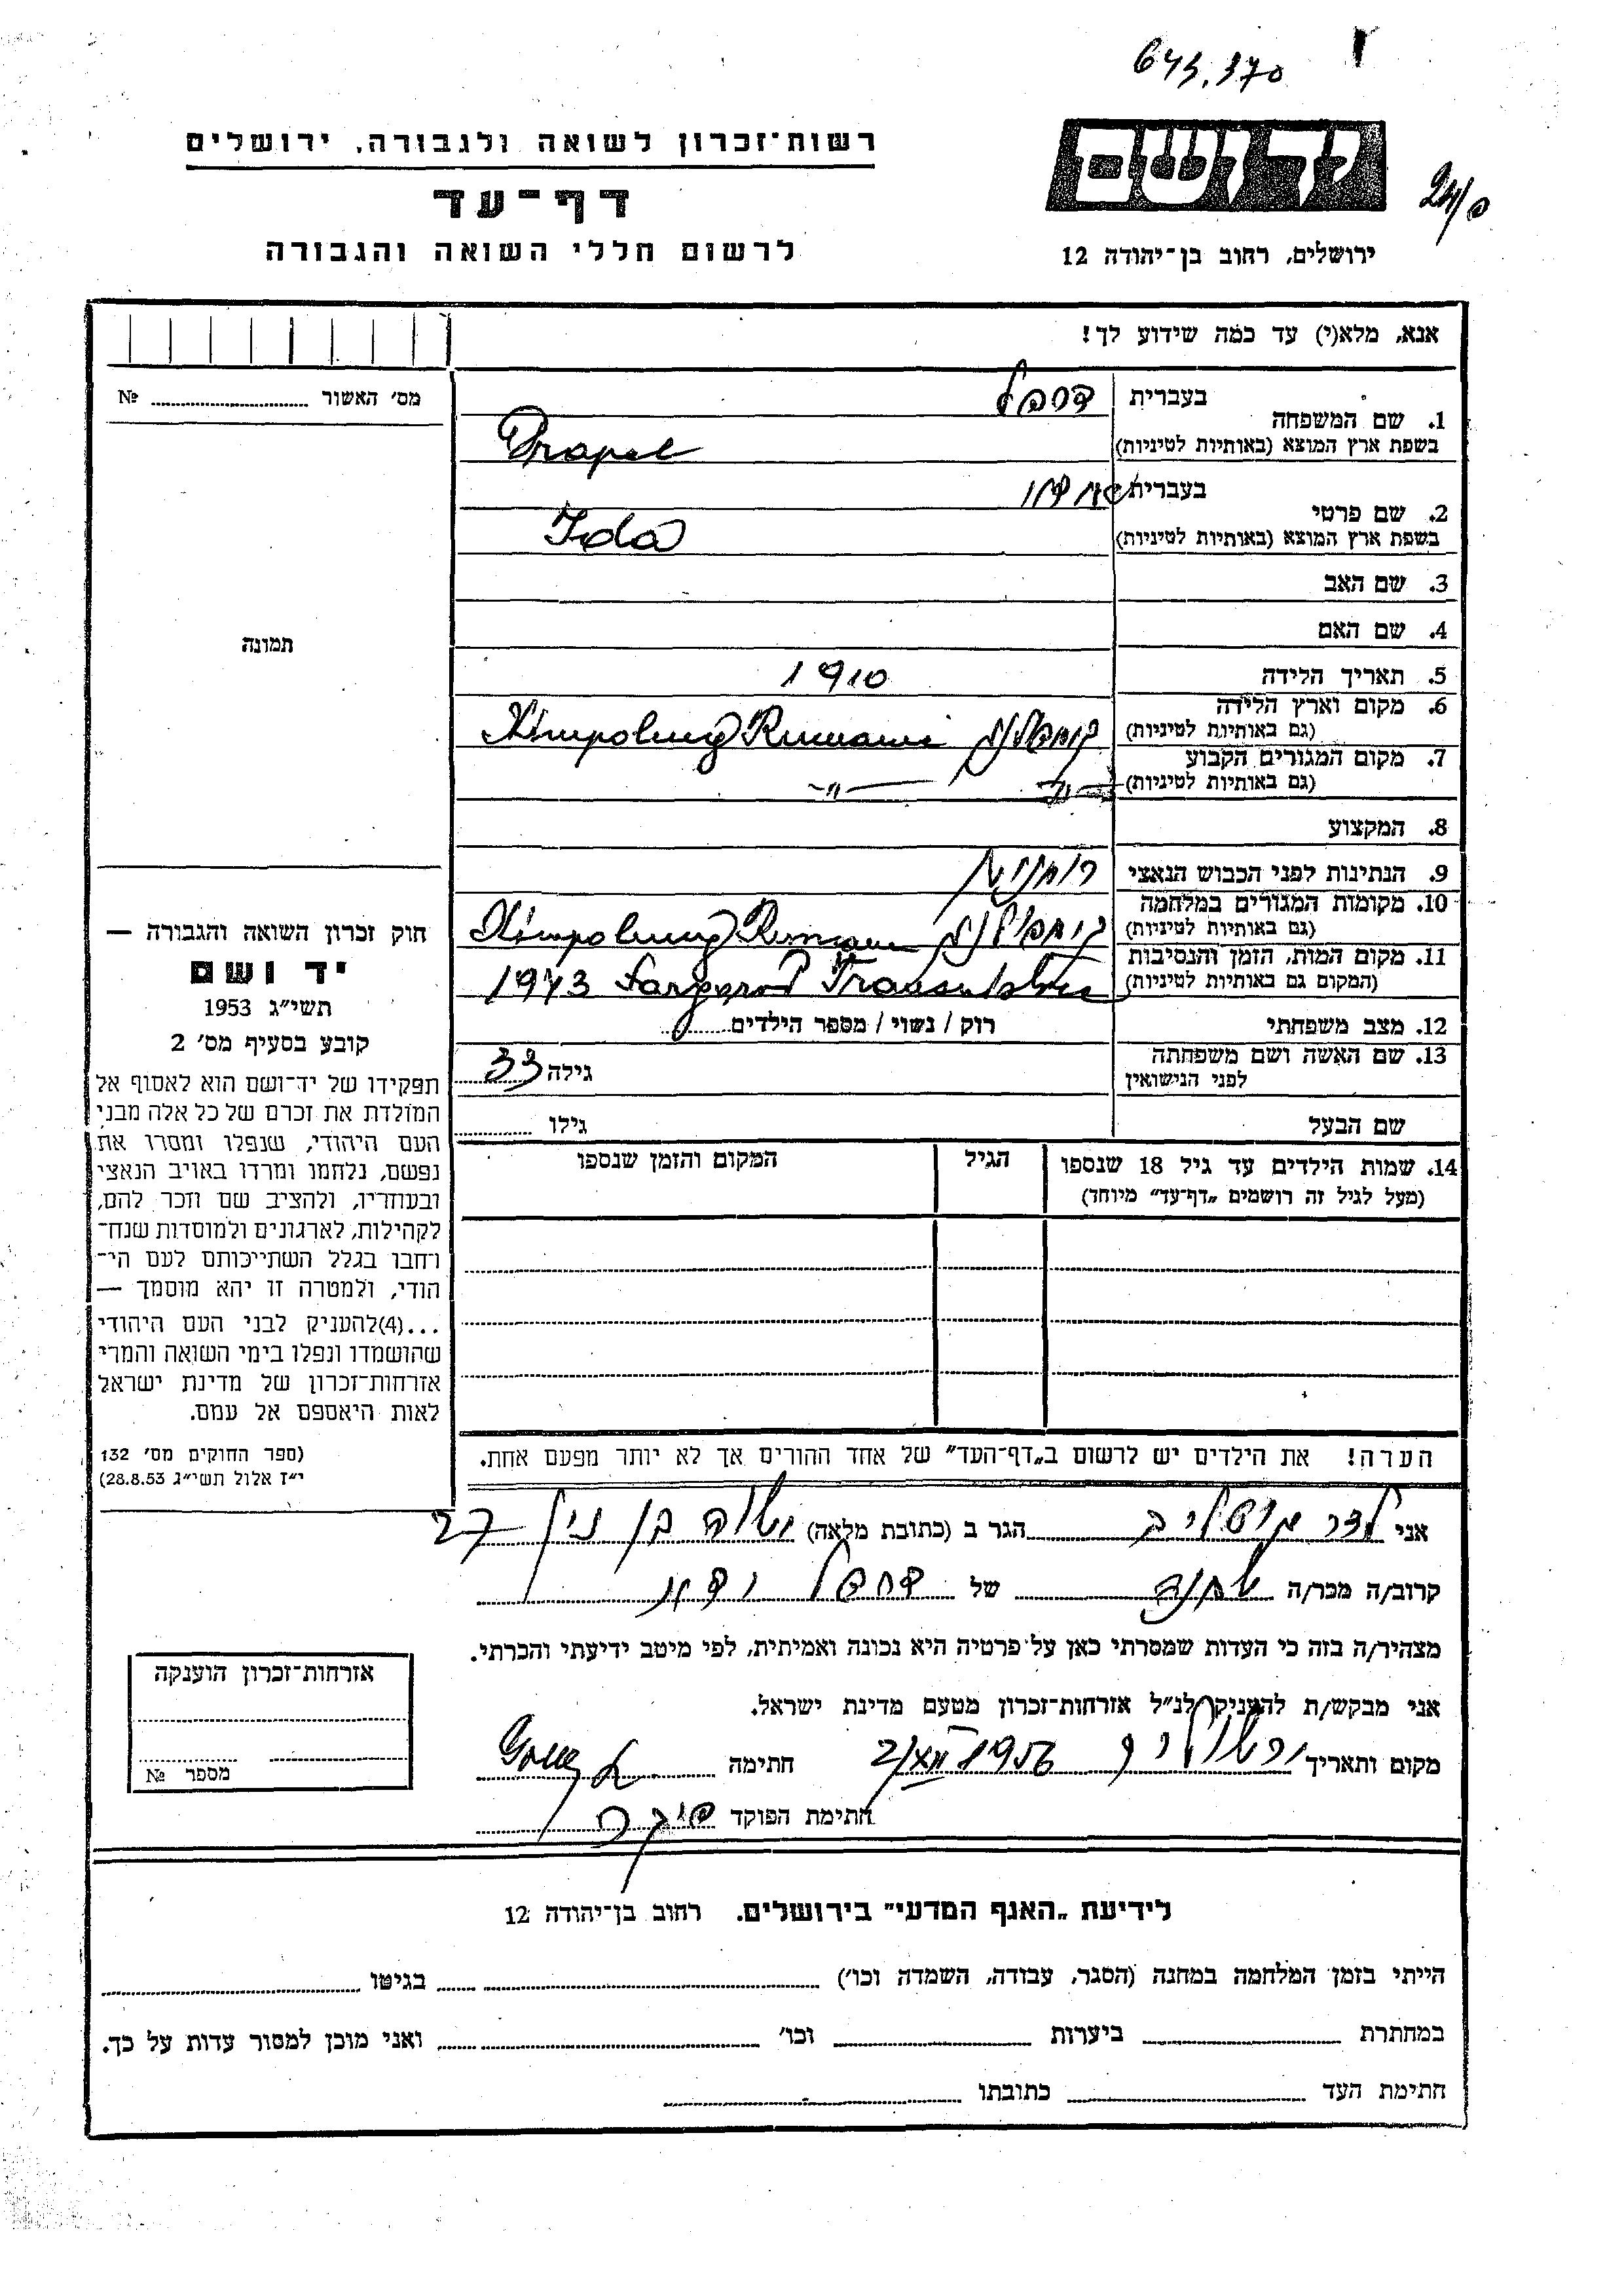 643.370
רשות־זכרון לשואה ולגבורה, ירושלים
יד ושם
24/
דף־עד
לרשום חללי השואה והגבורה
ירושלים, רחוב בן־יהודה 12
אנא, מלא(י) עד כמה שידוע לך!
מס׳ האשור № ........
תמונה
1. שם המשפחה
בעברית דרפל
בשפת ארץ המוצא (באותיות לטיניות) Drapel
2. שם פרטי
בעברית
בשפת ארץ המוצא (באותיות לטיניות) Ida
3. שם האב
4. שם האם
5. תאריך הלידה 1910
6. מקום וארץ הלידה
(גם באותיות לטיניות) קומפולונג Kimpolung Rumani
7. מקום המגורים הקבוע
(גם באותיות לטיניות) —״— —״—
8. המקצוע
9. הנתינות לפני הכבוש הנאצי רומנית
10. מקומות המגורים במלחמה
(גם באותיות לטיניות) קומפולונג Kimpolung
11. מקום המות, הזמן והנסיבות
(המקום גם באותיות לטיניות) 1943
12. מצב משפחתי רוק / נשוי / מספר הילדים........
13. שם האשה ושם משפחתה
לפני הנישואין גילה 33
שם הבעל גילו ........
14. שמות הילדים עד גיל 18 שנספו הגיל המקום והזמן שנספו
(מעל לגיל זה רושמים „דף־עד״ מיוחד)
חוק זכרון השואה והגבורה —
יד ושם
תשי״ג 1953
קובע בסעיף מס׳ 2
תפקידו של יד־ושם הוא לאסוף אל
המולדת את זכרם של כל אלה מבני
העם היהודי, שנפלו ומסרו את
נפשם, נלחמו ומרדו באויב הנאצי
ובעוזריו, ולהציב שם וזכר להם,
לקהילות, לארגונים ולמוסדות שנח־
רחבו בגלל השתייכותם לעם הי־
הודי, ולמטרה זו יהא מוסמך —
...(4)להעניק לבני העם היהודי
שהושמדו ונפלו בימי השואה והמרי
אזרחות־זכרון של מדינת ישראל
לאות היאספם אל עמם.
(ספר החוקים מס׳ 132
י״ז אלול תשי״ג 28.8.53)
הערה! את הילדים יש לרשום ב„דף־העד״ של אחד ההורים אך לא יותר מפעם אחת.
אני ........ הגר ב (כתובת מלאה) 27
קרוב/ה מכר/ה ........ של דרפל
מצהיר/ה בזה כי העדות שמסרתי כאן על פרטיה היא נכונה ואמיתית, לפי מיטב ידיעתי והכרתי.
אני מבקש/ת להעניק לנ״ל אזרחות־זכרון מטעם מדינת ישראל.
מקום ותאריך ירושלים 1956 חתימה ........
חתימת הפוקד ........
אזרחות־זכרון הוענקה
מספר №
לידיעת „האגף המדעי״ בירושלים. רחוב בן־יהודה 12
הייתי בזמן המלחמה במחנה (הסגר, עבודה, השמדה וכו׳) ........ בגיטו ........
במחתרת ........ ביערות ........ וכו׳ ........ ואני מוכן למסור עדות על כך.
חתימת העד ........ כתובתו ........